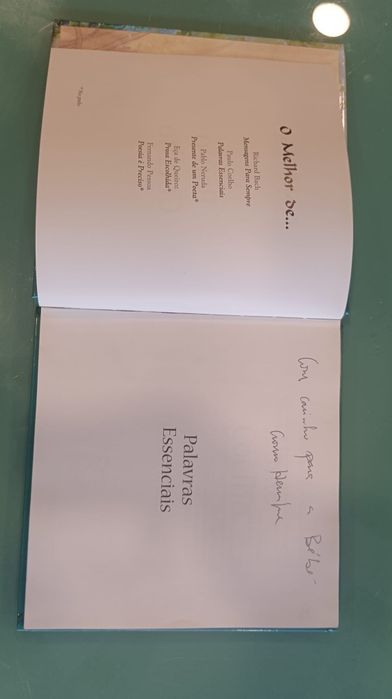 O Melhor de...
Richard Bach
Mensagens Para Sempre
Paulo Coelho
Palavras Essenciais
Pablo Neruda
Presente de um Poeta*
Eça de Queiroz
Prosa Escolhida*
Fernando Pessoa
Poesia é Preciso*
* No prelo
Com carinho para a Bébé
Palavras
Essenciais